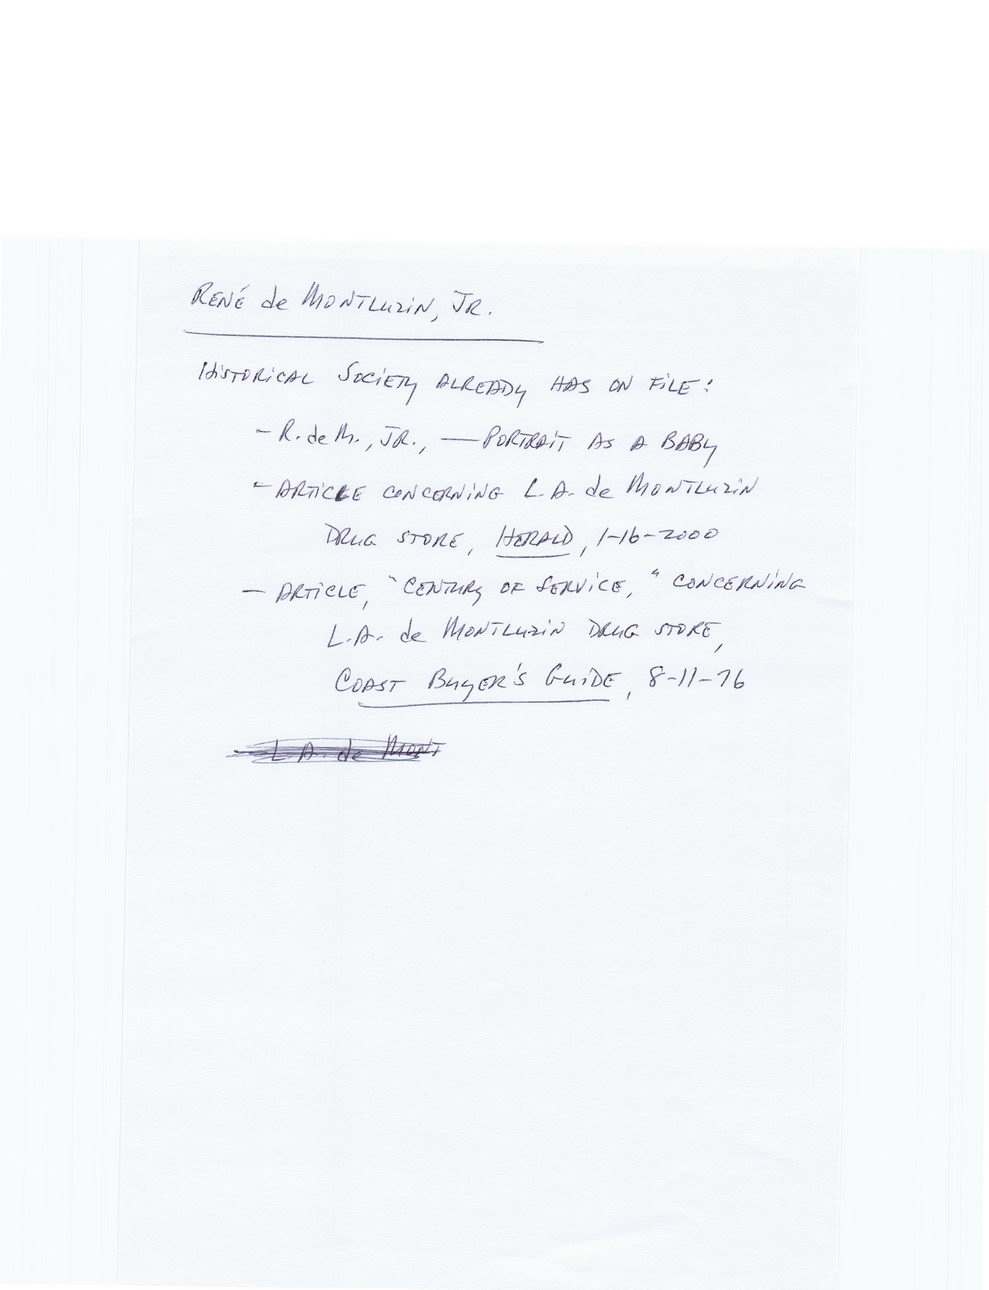 René de Montluzin, Jr.
Historical Society already has on file:
- R. de M., Jr., — Portrait as a baby
- Article concerning L.A. de Montluzin
Drug Store, Herald, 1-16-2000
- Article, "Century of Service," concerning
L.A. de Montluzin Drug Store,
Coast Buyer's Guide, 8-11-76
- L.A. de Mont